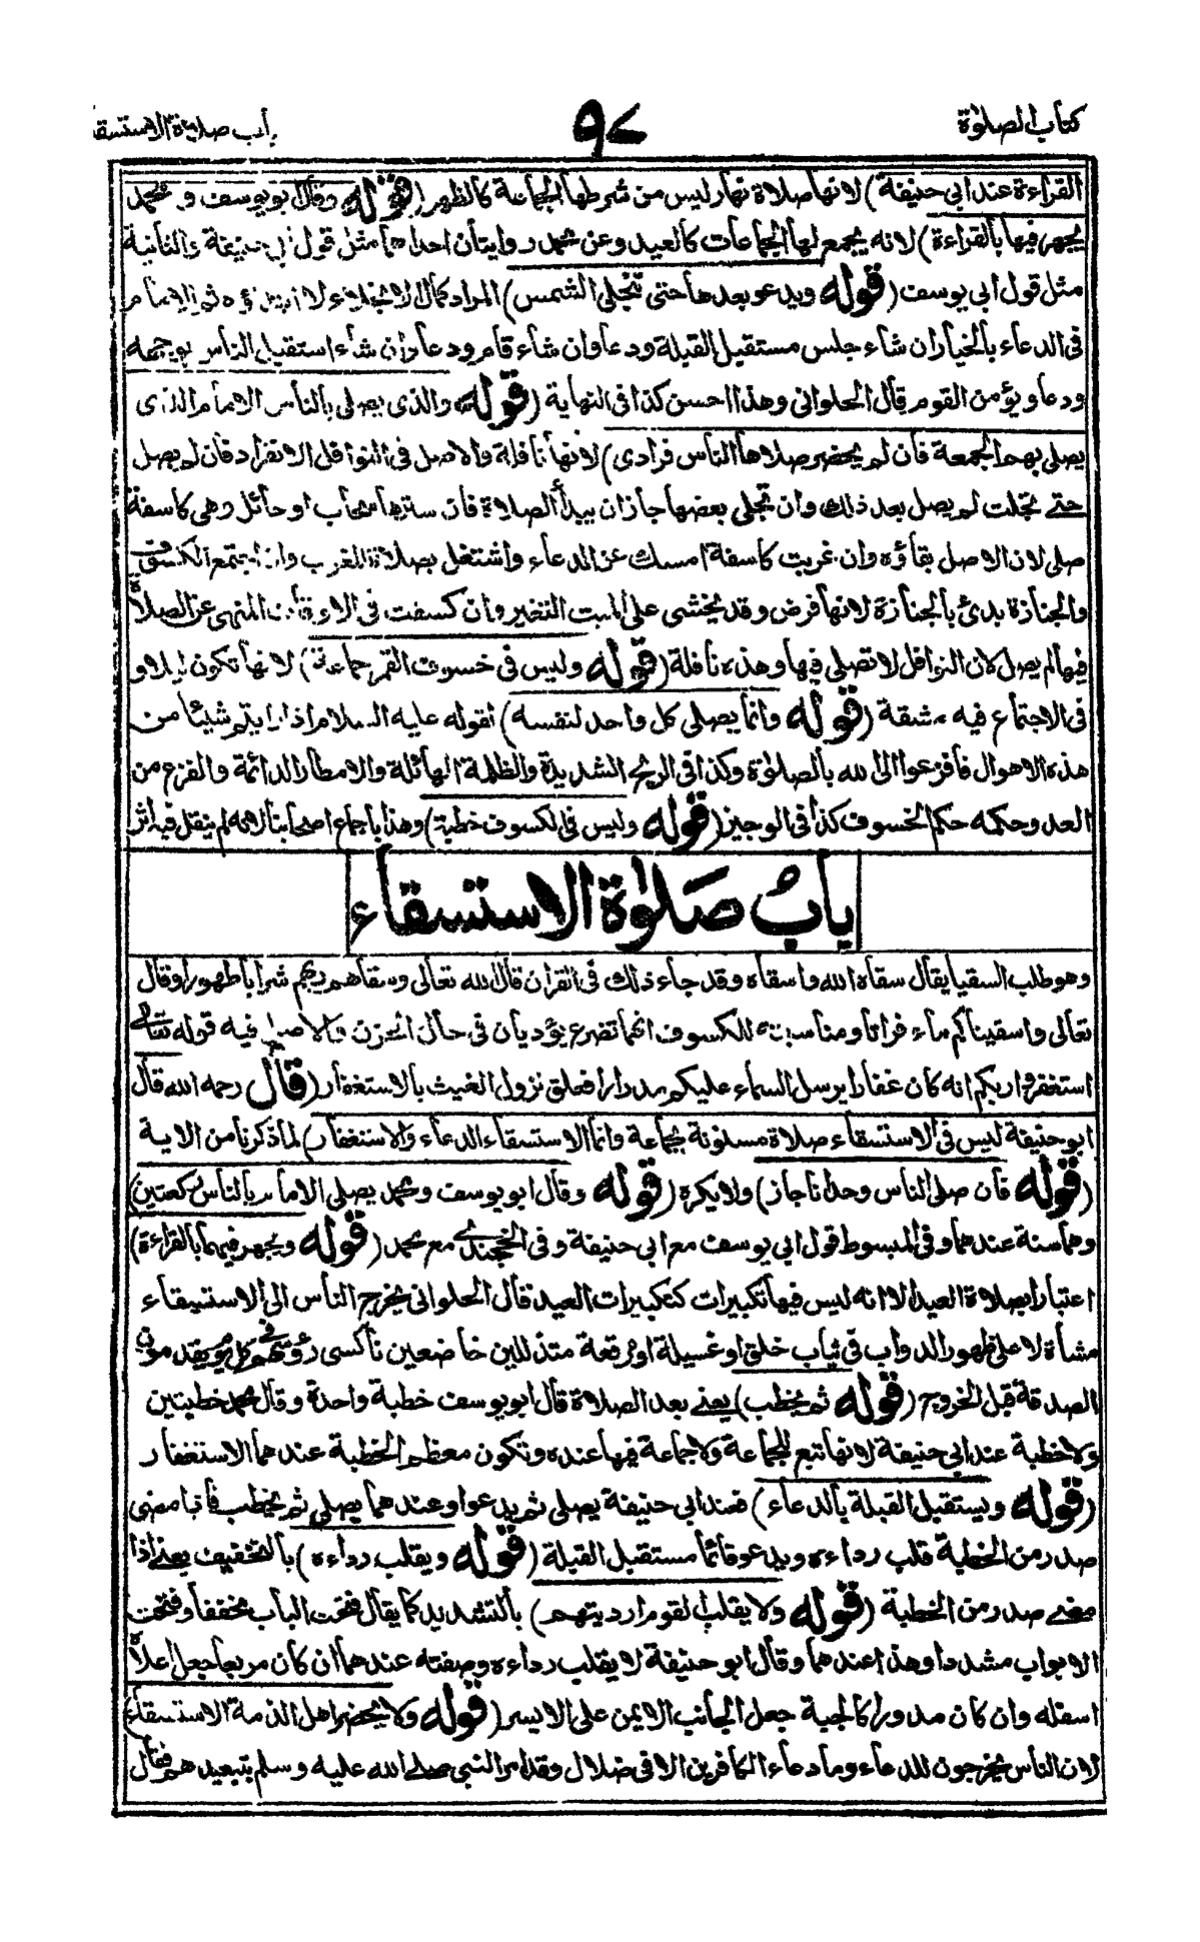 كتاب الصلوٰة
٩٧
باب صلوٰة الاستسقا
القراءة عند ابي حنيفة) لانها صلاة نهار ليس من شرطها الجماعة كالظهر (قوله وقال ابو يوسف و محمد
يجهر فيها بالقراءة) لانه يجمع لها الجماعات كالعيد وعن محمد روايتان احداهما مثل قول ابي حنيفة والثانية
مثل قول ابي يوسف (قوله ويدعو بعدها حتى تنجلي الشمس) المراد كمال الانجلاء لا ابتداؤه ثم الامام
فى الدعاء بالخيار ان شاء جلس مستقبل القبلة ودعا وان شاء قام ودعا وان شاء استقبل الناس بوجهه
ودعا ويؤمن القوم قال الحلوانى وهذا احسن كذا فى النهاية (قوله والذى يصلى بالناس الامام الذى
يصلى بهم الجمعة فان لم يحضر صلاها الناس فرادى) لانها نافلة والاصل فى النوافل الانفراد فان لم يصل
حتے تجلت لم يصل بعد ذلك وان تجلى بعضها جاز ان يبدأ الصلاة فان سترها سحاب او حائل وهى كاسفة
صلى لان الاصل بقاؤه وان غربت كاسفة امسك عن الدعاء واشتغل بصلاة المغرب وان اجتمع الكسوف
والجنازة بدئ بالجنازة لانها فرض وقد يخشى على الميت التغير وان كسفت فى الاوقات المنهى عن الصلاة
فيها لم يصل لان النوافل لا تصلى فيها وهذه نافلة (قوله وليس فى خسوف القمر جماعة) لانها تكون ليلا و
فى الاجتماع فيه مشقة (قوله وانما يصلى كل واحد لنفسه) لقوله عليه السلام اذا رايتم شيئا من
هذه الاهوال فافزعوا الى الله بالصلوٰة وكذا فى الريح الشديدة والظلمة الهائلة والامطار الدائمة والفزع من
العدو حكمه حكم الخسوف كذا فى الوجيز (قوله وليس فى الكسوف خطبة) وهذا باجماع اصحابنا لانه لم ينقل فيه اثر
باب صَلوٰة الاستسقاء
وهو طلب السقيا يقال سقاه الله واسقاه وقد جاء ذلك فى القران قال الله تعالى وسقاهم ربهم شرابا طهورا وقال
تعالى واسقيناكم ماء فراتا ومناسبته للكسوف انهما تضرع يؤديان فى حال الحزن والاصل فيه قوله تعالى
استغفروا ربكم انه كان غفارا يرسل السماء عليكم مدرارا فعلق نزول الغيث بالاستغفار (قال رحمه الله قال
ابو حنيفة ليس فى الاستسقاء صلاة مسنونة بجماعة وانما الاستسقاء الدعاء والاستغفار) لما ذكرنا من الاية
(قوله فان صلى الناس وحدانا جاز) ولا يكره (قوله وقال ابو يوسف ومحمد يصلى الامام بالناس ركعتين)
وهما سنة عندهما وفى المبسوط قول ابي يوسف مع ابي حنيفة وفى الخجندے مع محمد (قوله ويجهر فيهما بالقراءة)
اعتبارا بصلاة العيد الا انه ليس فيها تكبيرات كتكبيرات العيد قال الحلوانى يخرج الناس الى الاستسقاء
مشاة لا على ظهور الدواب فى ثياب خلق او غسيلة او مرقعة متذللين خاضعين ناكسى رؤسهم فى كل يوم يقدمون
الصدقة قبل الخروج (قوله ثم يخطب) يعنے بعد الصلاة قال ابو يوسف خطبة واحدة وقال محمد خطبتين
ولا خطبة عند ابي حنيفة لانها تتبع للجماعة ولا جماعة فيها عنده وتكون معظم الخطبة عندهما الاستغفار
(قوله ويستقبل القبلة بالدعاء) فعند ابي حنيفة يصلى ثم يدعوا وعندهما يصلى ثم يخطب فاذا مضى
صدر من الخطبة قلب رداءه ويدعو قائما مستقبل القبلة (قوله ويقلب رداءه) بالتخفيف يعنے اذا
مضے صدر من الخطبة (قوله ولا يقلب القوم ارديتهم) بالتشديد كما يقال فتحت الباب مخففا وفتحت
الابواب مشددا وهذا عندهما وقال ابو حنيفة لا يقلب رداءه وصفته عندهما ان كان مربعا جعل اعلاه
اسفله وان كان مدورا كالجبة جعل الجانب الايمن على الايسر (قوله ولا يحضر اهل الذمة الاستسقاء)
لان الناس يخرجون للدعاء وما دعاء الكافرين الا فى ضلال وقد امر النبى صلے الله عليه وسلم بتبعيدهم فقال